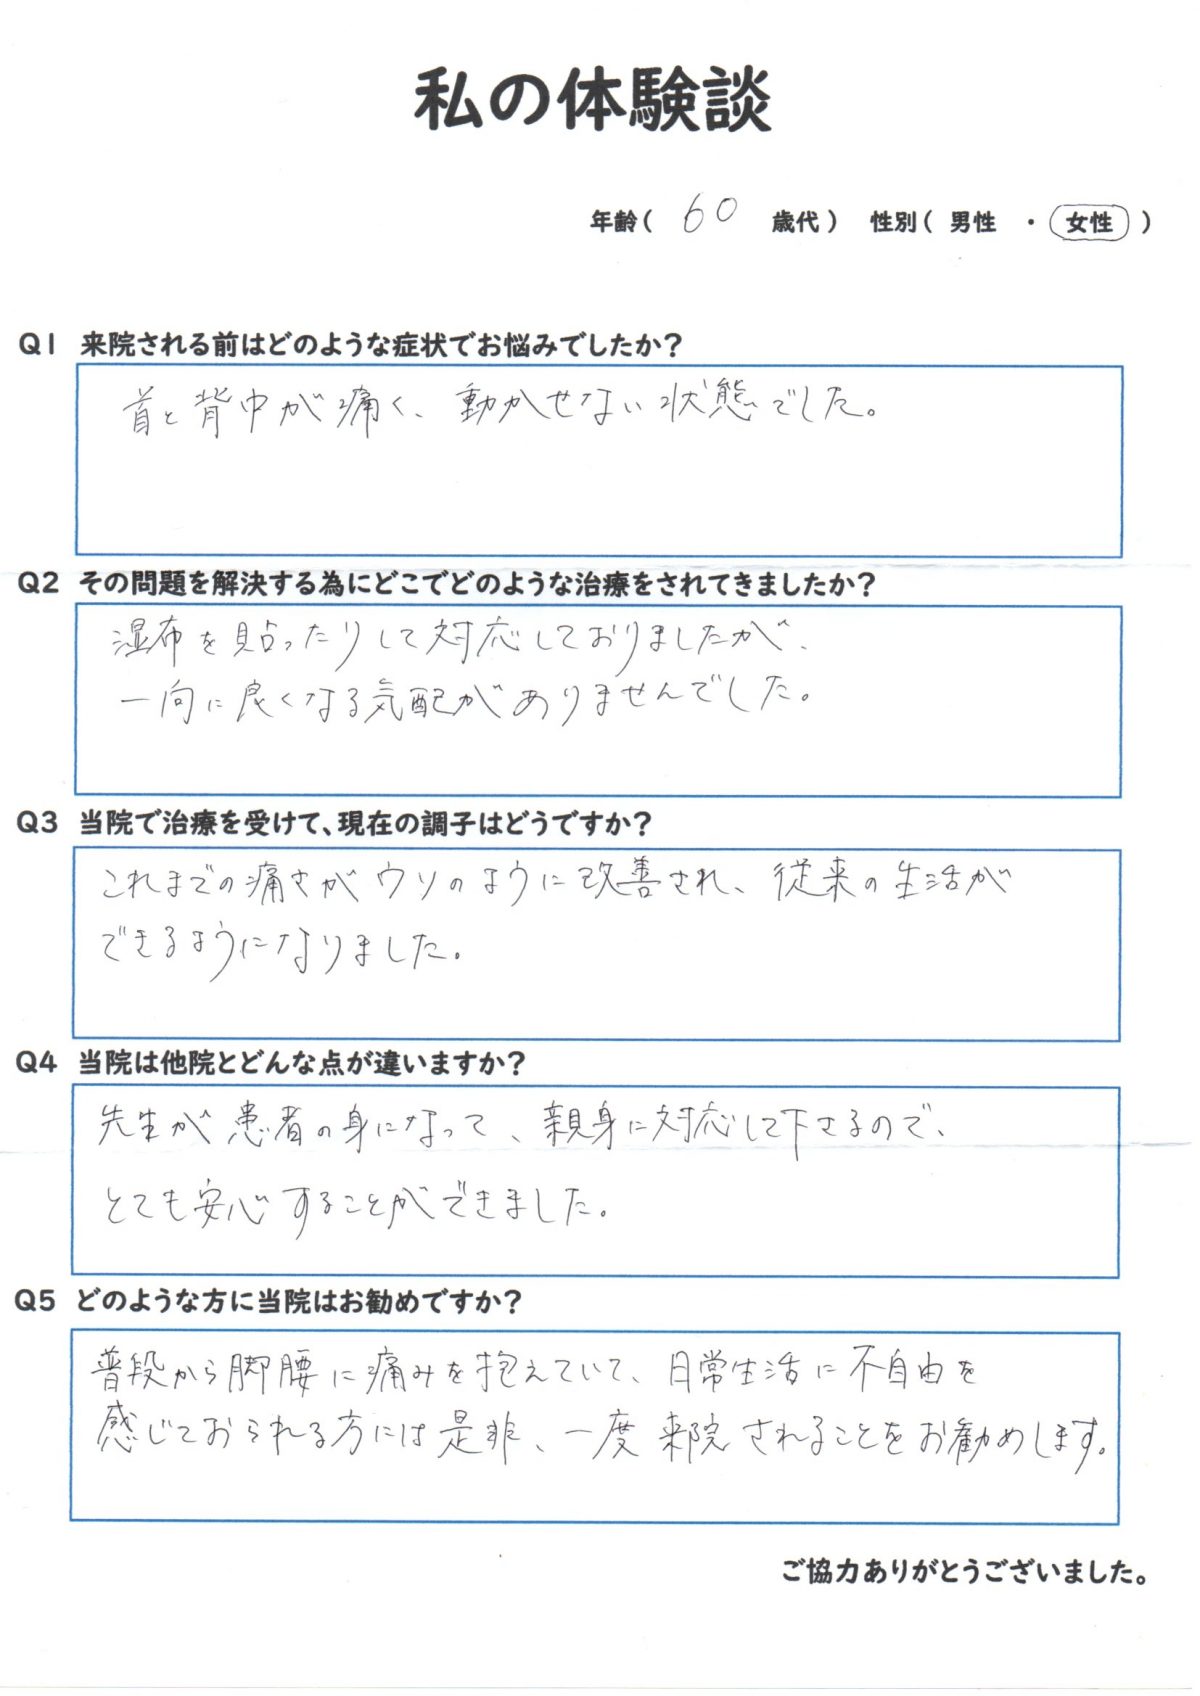 私の体験談
年齢( 60 歳代) 性別( 男性 ・ 女性 )
Q1 来院される前はどのような症状でお悩みでしたか?
首と背中が痛く、動かせない状態でした。
Q2 その問題を解決する為にどこでどのような治療をされてきましたか?
湿布を貼ったりして対応しておりましたが、
一向に良くなる気配がありませんでした。
Q3 当院で治療を受けて、現在の調子はどうですか?
これまでの痛さがウソのように改善され、従来の生活が
できるようになりました。
Q4 当院は他院とどんな点が違いますか?
先生が患者の身になって、親身に対応して下さるので、
とても安心することができました。
Q5 どのような方に当院はお勧めですか?
普段から脚腰に痛みを抱えていて、日常生活に不自由を
感じておられる方には是非、一度来院されることをお勧めします。
ご協力ありがとうございました。